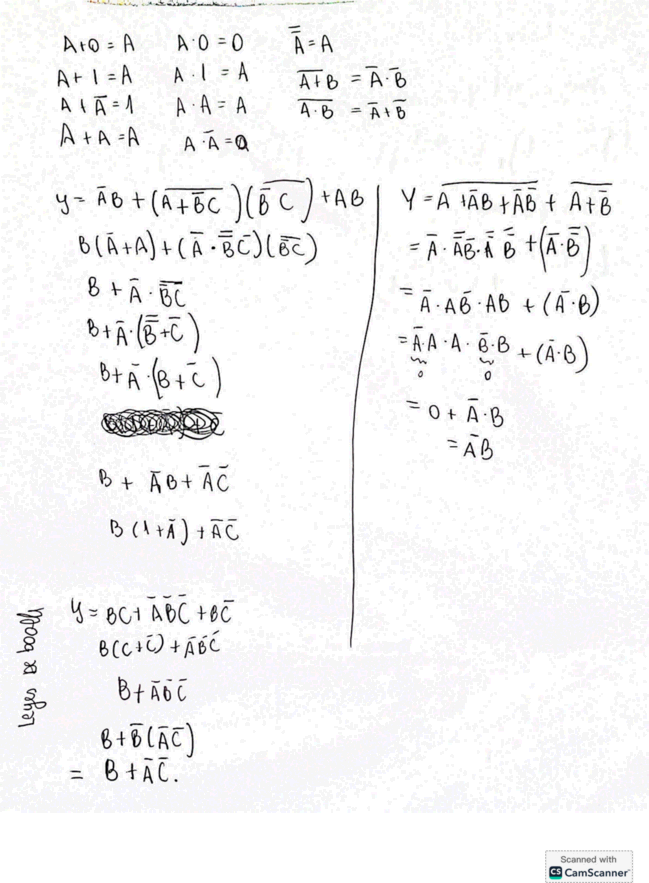 A+0 = A   A·0 = 0   A̿ = A
A+1 = A   A·1 = A   \overline{A+B} = A̅·B̅
A+A̅ = 1   A·A = A   \overline{A·B} = A̅+B̅
A+A = A   A·A̅ = 0
y = A̅B + (\overline{A+B̅C})(\overline{B̅C}) + AB
B(A̅+A) + (A̅·\overline{B̅C})(\overline{B̅C})
B + A̅·\overline{B̅C}
B+A̅·(B̿+C̅)
B+A̅·(B+C̅)
B + A̅B + A̅C̅
B(1+A̅) + A̅C̅
Y = \overline{A+A̅B+A̅B̅} + \overline{A+B̅}
= A̅·\overline{A̅B}·\overline{A̅B̅} + (A̅·B̿)
= A̅·AB̅·AB + (A̅·B)
= A̅·A·A·B̅·B + (A̅·B)
0   0
= 0 + A̅·B
= A̅B
Leyes de boole
Y = BC + A̅B̅C̅ + BC̅
B(C+C̅) + A̅B̅C̅
B+A̅B̅C̅
B+B̅(A̅C̅)
= B+A̅C̅.
Scanned with
CS CamScanner